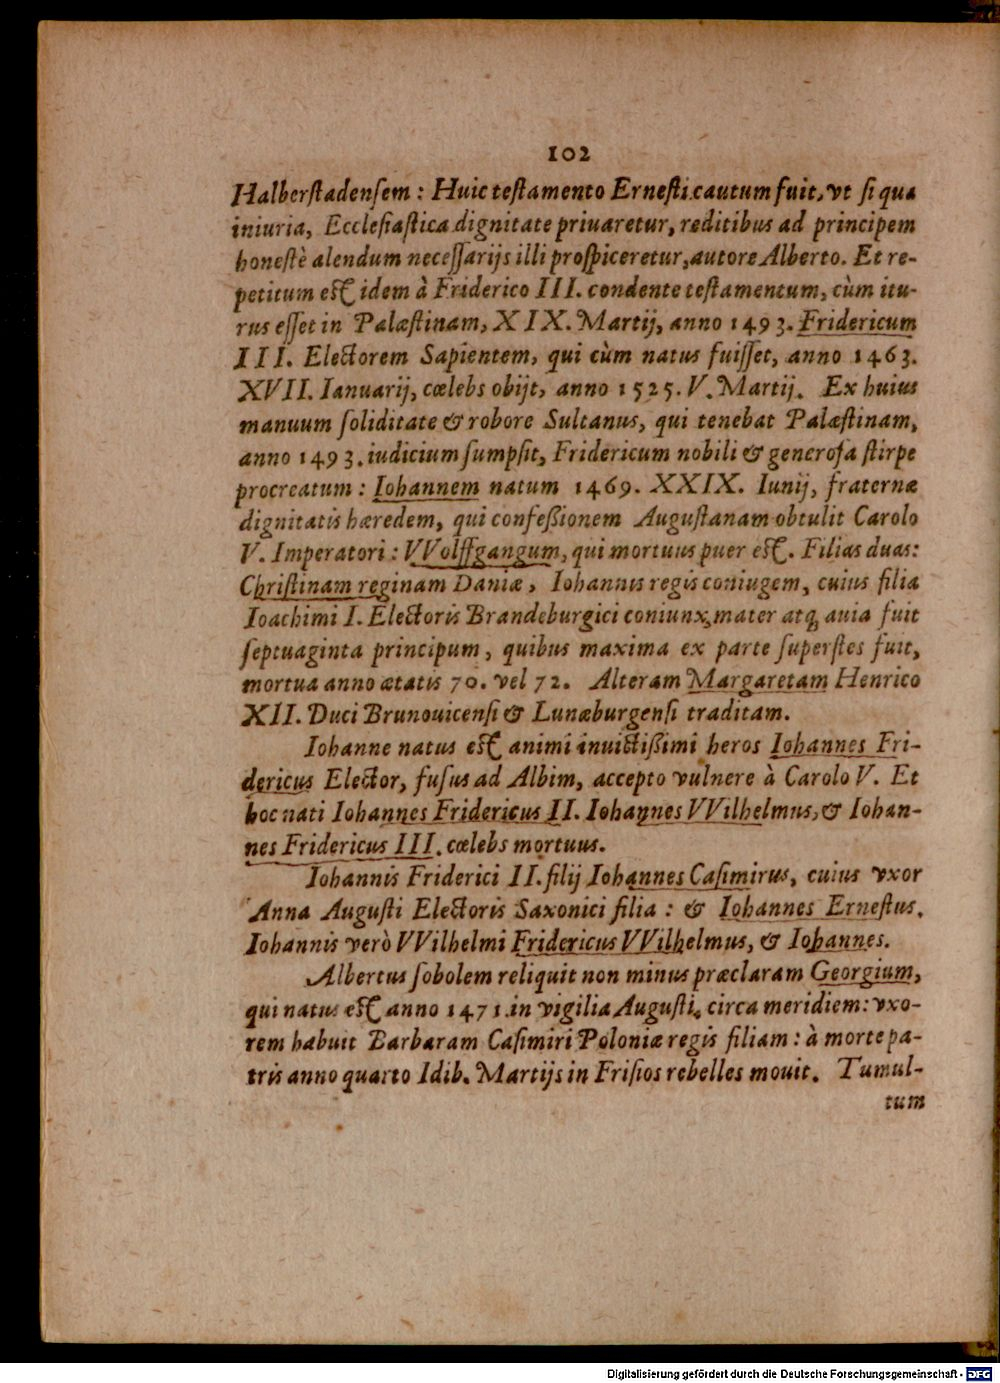 102
Halberſtadenſem : Huic teſtamento Erneſti cautum fuit, vt ſi qua
iniuria, Eccleſiaſtica dignitate priuaretur, reditibus ad principem
honeſtè alendum neceſſarijs illi proſpiceretur, autore Alberto. Et re-
petitum eſt idem à Friderico III. condente teſtamentum, cùm itu-
rus eſſet in Palæſtinam, XIX. Martij, anno 1493. Fridericum
III. Electorem Sapientem, qui cùm natus fuiſſet, anno 1463.
XVII. Ianuarij, cœlebs obijt, anno 1525. V. Martij. Ex huius
manuum ſoliditate & robore Sultanus, qui tenebat Palæſtinam,
anno 1493. iudicium ſumpſit, Fridericum nobili & generoſa ſtirpe
procreatum : Iohannem natum 1469. XXIX. Iunij, fraternæ
dignitatis hæredem, qui confeßionem Auguſtanam obtulit Carolo
V. Imperatori : VVolffgangum, qui mortuus puer eſt. Filias duas:
Chriſtinam reginam Daniæ, Iohannis regis coniugem, cuius filia
Ioachimi I. Electoris Brandeburgici coniunx, mater atq; auia fuit
ſeptuaginta principum, quibus maxima ex parte ſuperſtes fuit,
mortua anno ætatis 70. vel 72. Alteram Margaretam Henrico
XII. Duci Brunouicenſi & Lunæburgenſi traditam.
Iohanne natus eſt animi inuictißimi heros Iohannes Fri-
dericus Elector, fuſus ad Albim, accepto vulnere à Carolo V. Et
hoc nati Iohannes Fridericus II. Iohannes VVilhelmus, & Iohan-
nes Fridericus III. cœlebs mortuus.
Iohannis Friderici II. filij Iohannes Caſimirus, cuius vxor
Anna Auguſti Electoris Saxonici filia : & Iohannes Erneſtus.
Iohannis verò VVilhelmi Fridericus VVilhelmus, & Iohannes.
Albertus ſobolem reliquit non minus præclaram Georgium,
qui natus eſt anno 1471. in vigilia Auguſti, circa meridiem: vxo-
rem habuit Barbaram Caſimiri Poloniæ regis filiam : à morte pa-
tris anno quarto Idib. Martijs in Friſios rebelles mouit. Tumul-
tum
Digitalisierung gefördert durch die Deutsche Forschungsgemeinschaft - DFG